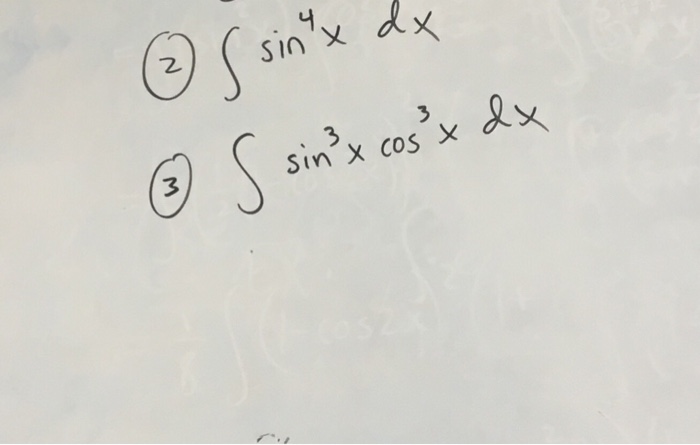 ② ∫ sin⁴x dx
③ ∫ sin³x cos³x dx